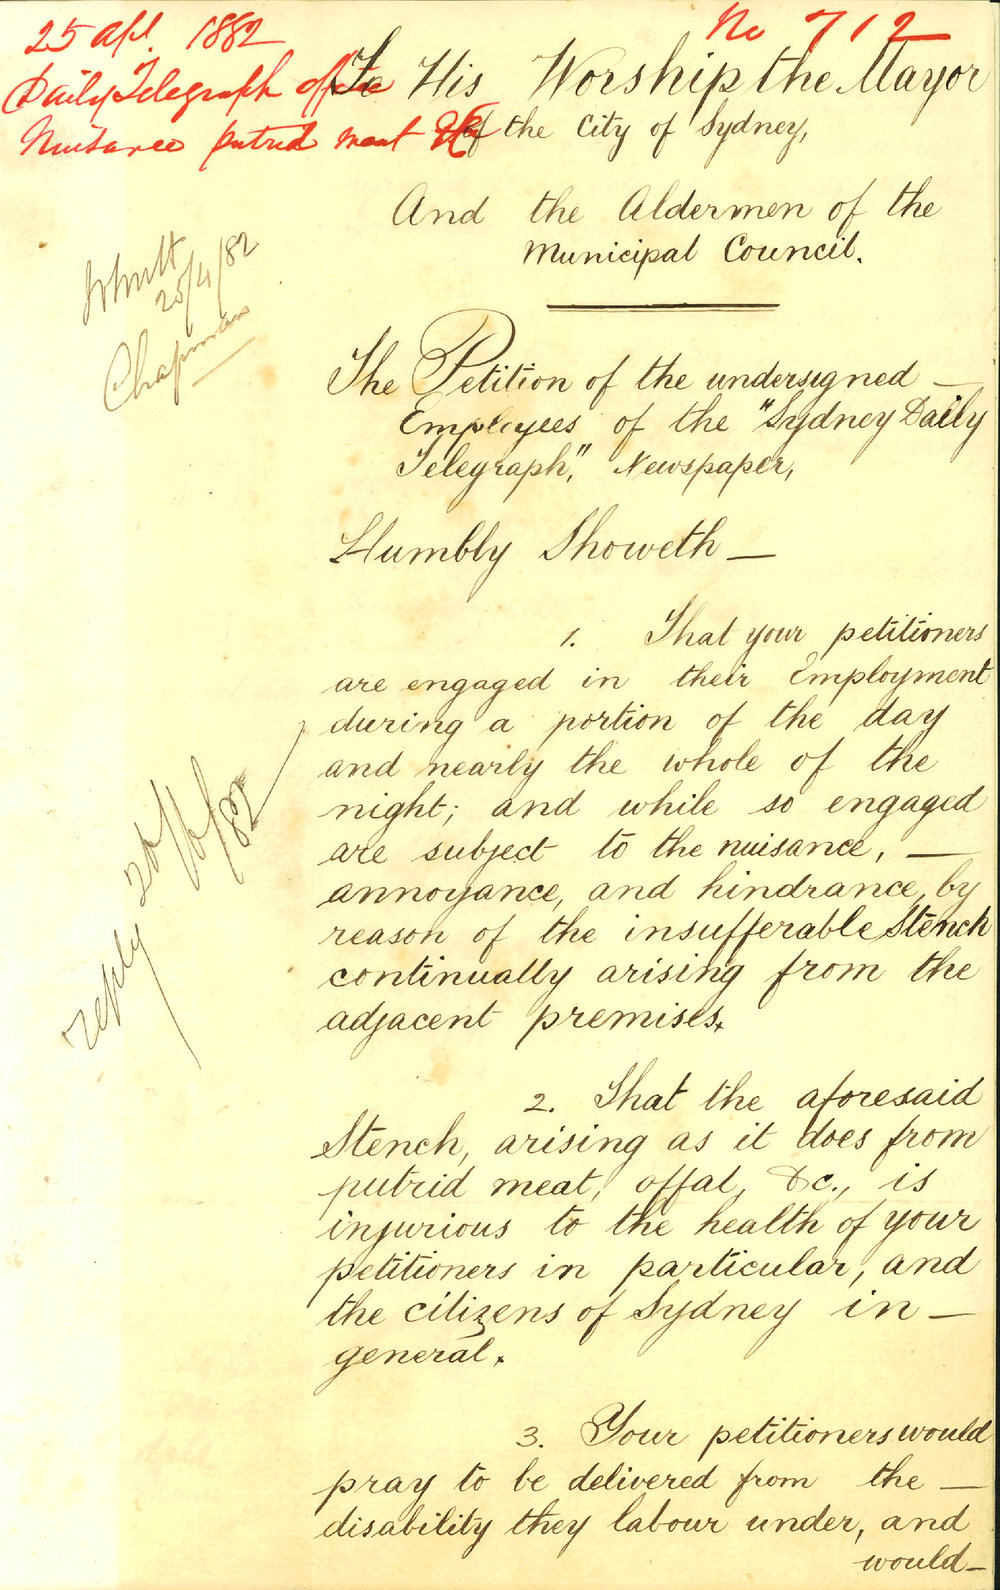 25 Apl. 1882
No 712
Daily Telegraph office
Nuisance putrid meat &c
To His Worship the Mayor
of the City of Sydney,
And the Aldermen of the
Municipal Council.
25/4/82
Chapman
The Petition of the undersigned —
Employees of the "Sydney Daily
Telegraph," Newspaper,
Humbly Showeth —
1. That your petitioners
are engaged in their Employment
during a portion of the day
and nearly the whole of the
night; and while so engaged
are subject to the nuisance, —
annoyance, and hindrance, by
reason of the insufferable Stench
continually arising from the
adjacent premises.
reply 26/6/82
2. That the aforesaid
Stench, arising as it does from
putrid meat, offal, &c., is
injurious to the health of your
petitioners in particular, and
the citizens of Sydney in —
general.
3. Your petitioners would
pray to be delivered from the —
disability they labour under, and
would —